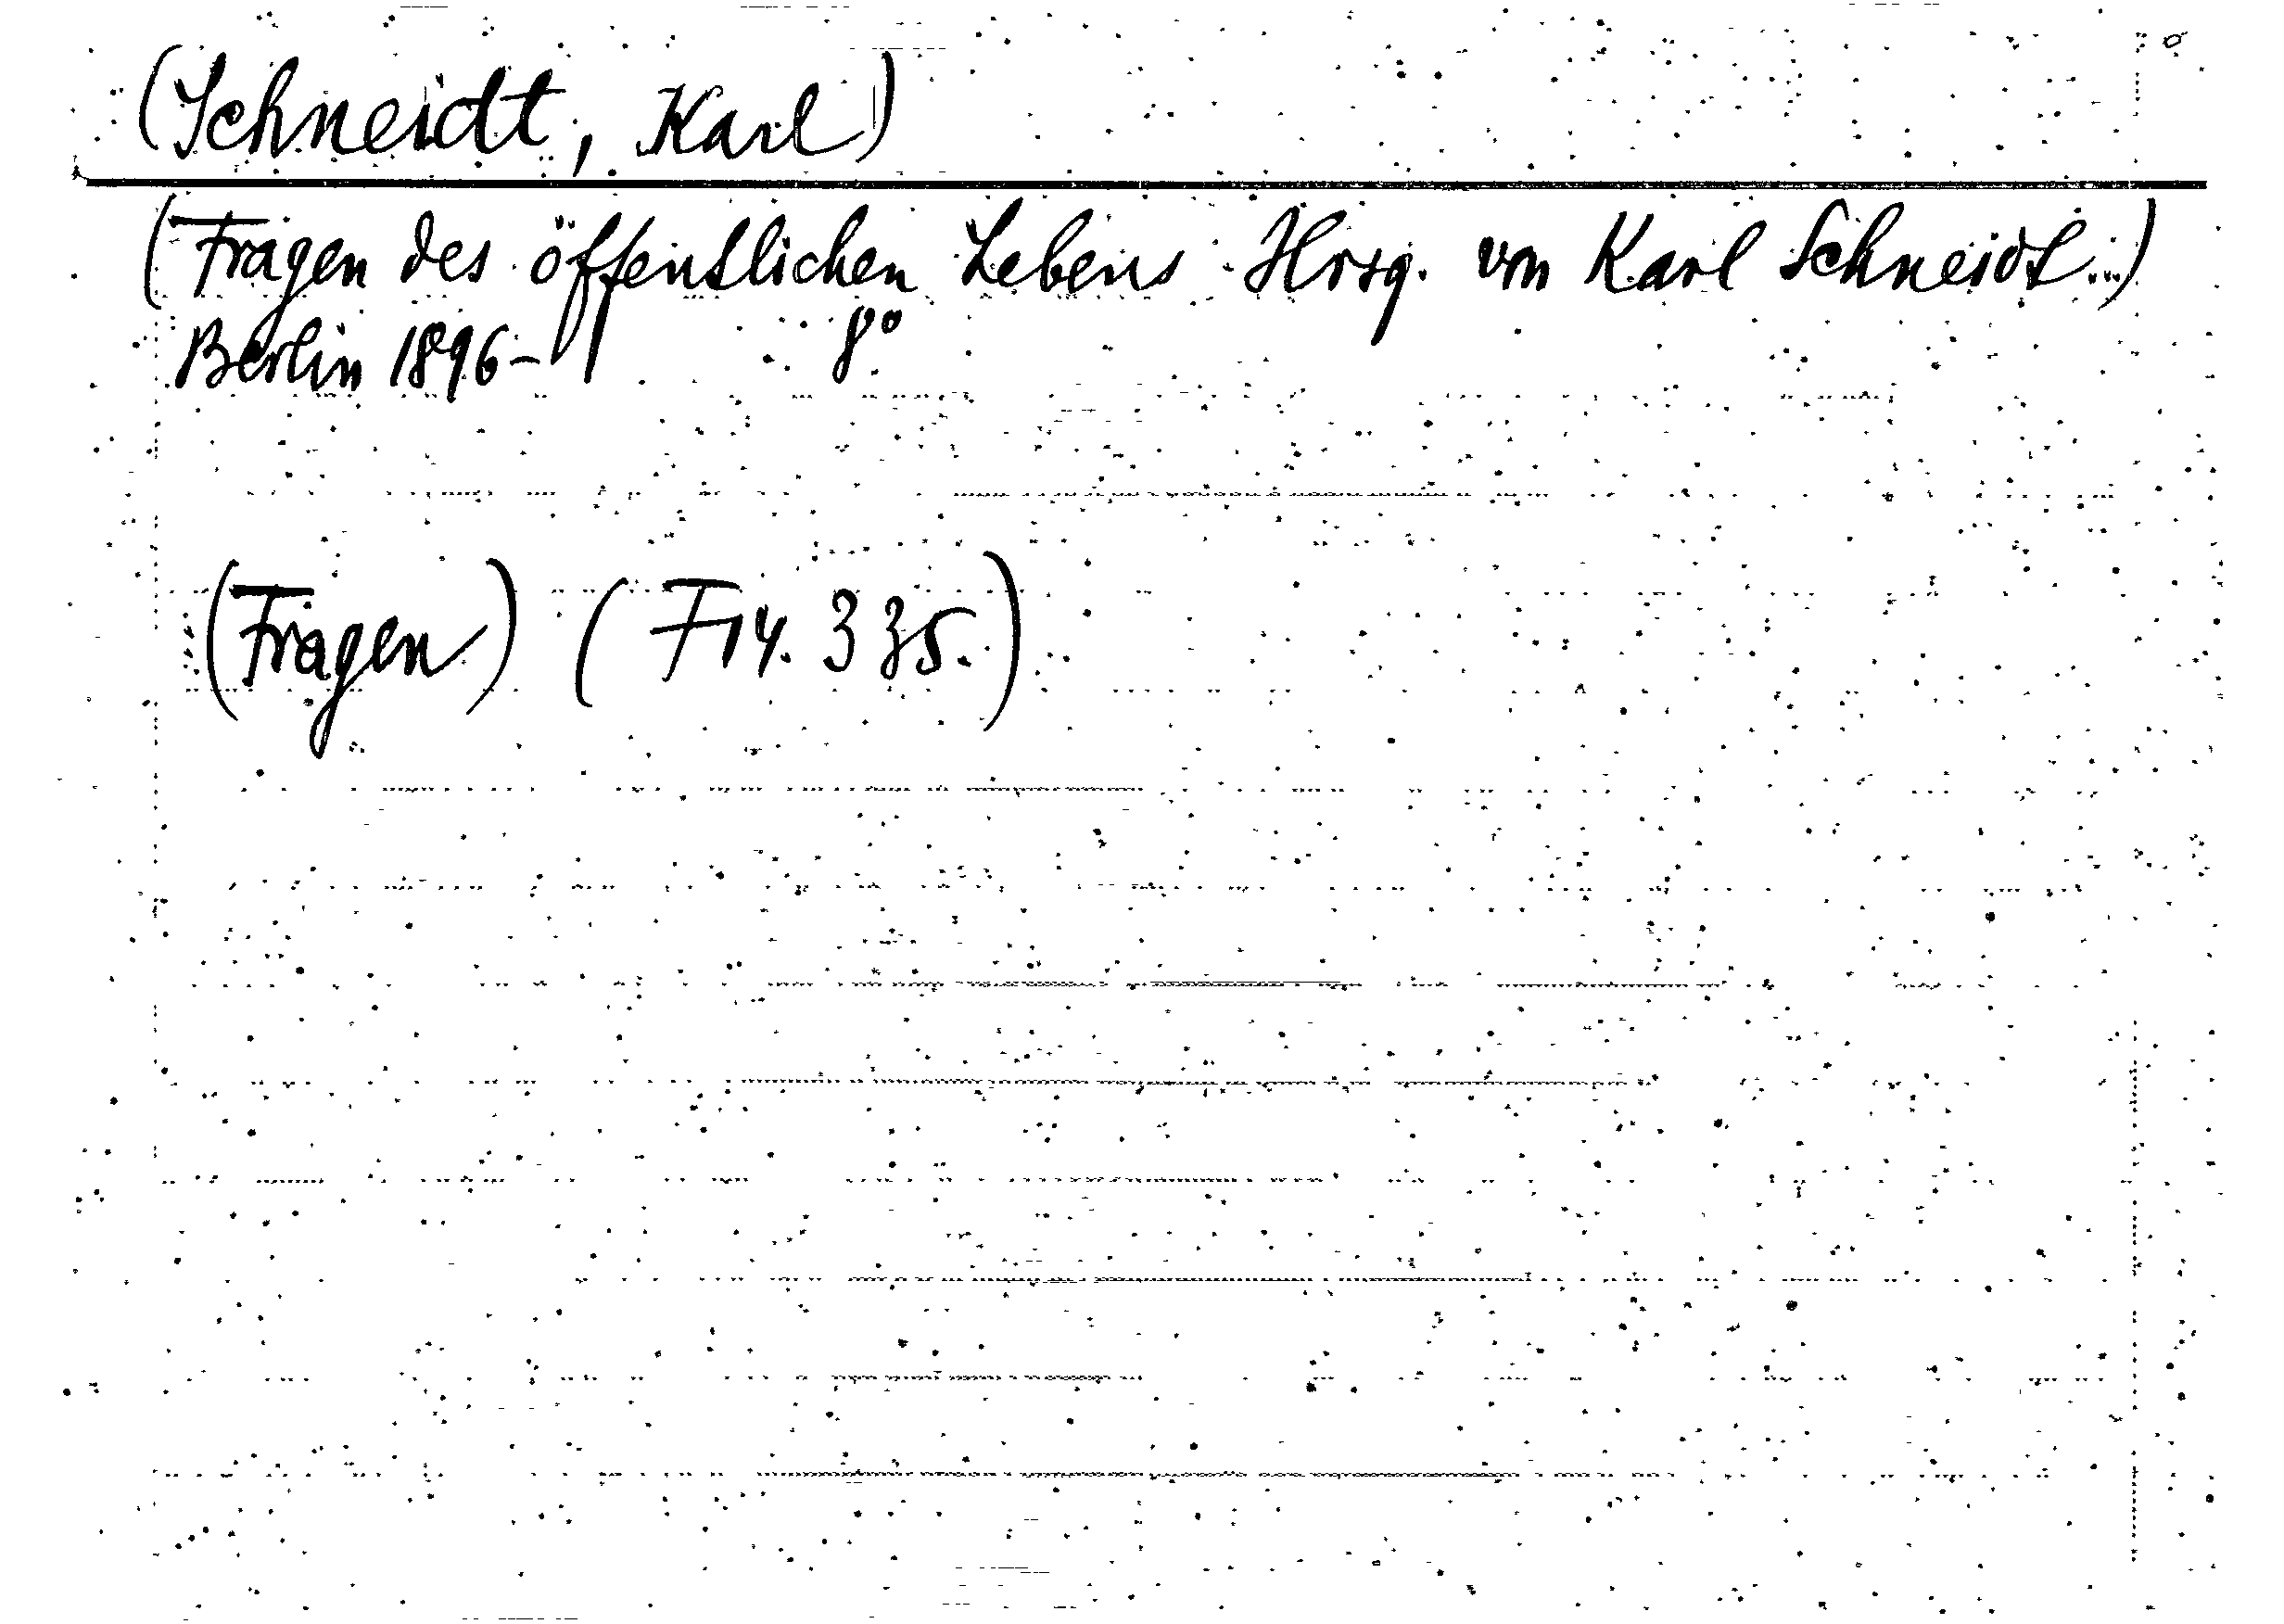 (Schneidt, Karl)
(Fragen des öffentlichen Lebens. Hrsg. von Karl Schneidt...)
Berlin 1896- 8°
(Fragen) (F14. 335.)